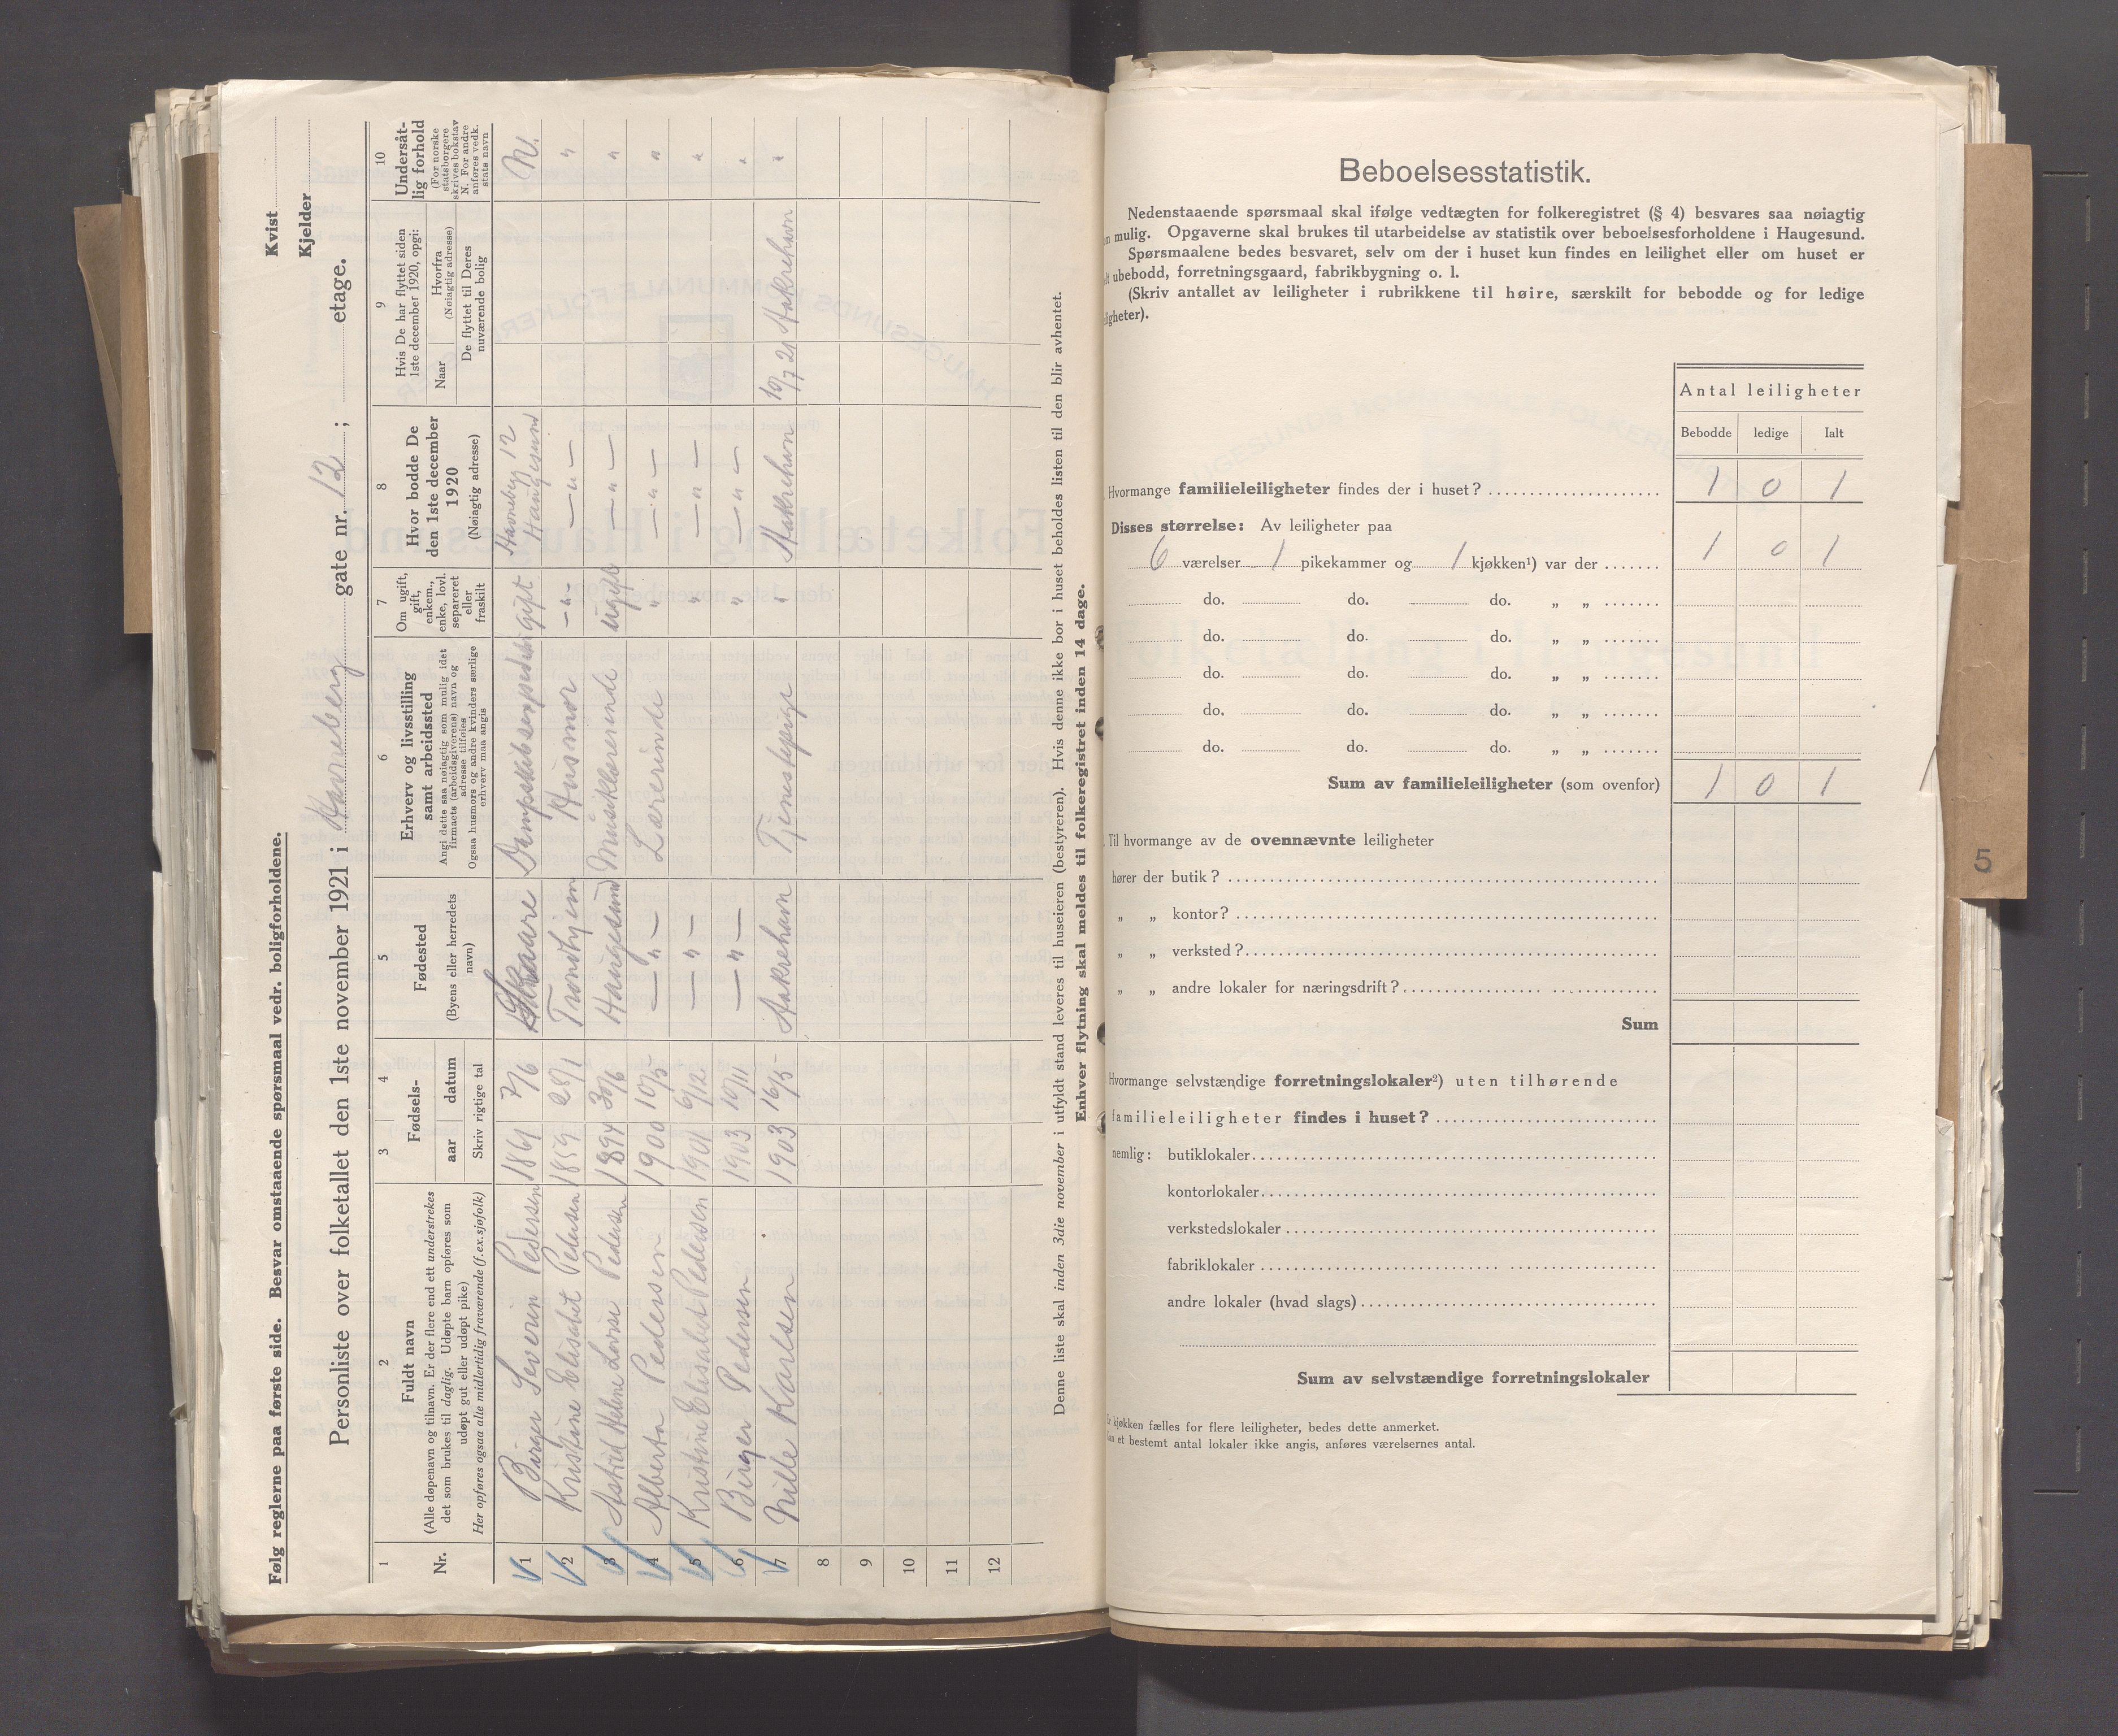 Følg reglerne paa første side. Besvar omstaaende spørsmaal vedr. boligforholdene.
Kvist
Kjelder
Personliste over folketallet den 1ste november 1921 i Havneberg gate nr. 12 ; etage.
1 2 3 4 5 6 7 8 9 10
Nr.
Fuldt navn
(Alle døpenavn og tilnavn. Er der flere end ett understrekes
det som brukes til daglig. Udøpte barn opføres som
udøpt gut eller udøpt pike)
Her opføres ogsaa alle midlertidig fraværende (f.ex.sjøfolk)
Fødsels-
aar datum
Skriv rigtige tal
Fødested
(Byens eller herredets
navn)
Erhverv og livsstilling
samt arbeidssted
Angi dette saa nøiagtig som mulig idet
firmaets (arbeidsgiverens) navn og
adresse tilføies
Ogsaa husmors og andre kvinders særlige
erhverv maa angis
Om ugift,
gift,
enkem.,
enke, lovl.
separeret
eller
fraskilt
Hvor bodde De
den 1ste december
1920
(Nøiagtig adresse)
Hvis De har flyttet siden
1ste december 1920, opgi:
Naar
Hvorfra
(Nøiagtig adresse)
De flyttet til Deres
nuværende bolig
Undersåt-
lig forhold
(For norske
statsborgere
skrives bokstav
N. For andre
anføres vedk.
stats navn
1 Birger Severin Pedersen 1861 7/6 Skaare Dampskibsexpeditør gift Havneberg 12 Haugesund N.
2 Kristine Elisabet Pedersen 1859 25/1 Trondhjem Husmor — " — — " — "
3 Astrid Helene Lovise Pedersen 1894 30/6 Haugesund Musiklærerinde ugift — " — "
4 Alberta Pedersen 1900 10/5 — " — Lærerinde " — " — "
5 Kristine Elisabet Pedersen 1901 6/12 — " — " — " — "
6 Birger Pedersen 1903 10/11 — " — " — " — "
7 Nille Karlsen 1903 16/5 Aakrehavn Tjenestepige " Aakrehavn 10/7 21 Aakrehavn "
8
9
10
11
12
Denne liste skal inden 3die november i utfyldt stand leveres til huseieren (bestyreren). Hvis denne ikke bor i huset beholdes listen til den blir avhentet.
Enhver flytning skal meldes til folkeregistret inden 14 dage.
Beboelsesstatistik.
Nedenstaaende spørsmaal skal ifølge vedtægten for folkeregistret (§ 4) besvares saa nøiagtig
mulig. Opgaverne skal brukes til utarbeidelse av statistik over beboelsesforholdene i Haugesund.
Spørsmaalene bedes besvaret, selv om der i huset kun findes en leilighet eller om huset er
ubebodd, forretningsgaard, fabrikbygning o. l.
(Skriv antallet av leiligheter i rubrikkene til høire, særskilt for bebodde og for ledige
ligheter).
Antal leiligheter
Bebodde ledige Ialt
Hvormange familieleiligheter findes der i huset? 1 0 1
Disses størrelse: Av leiligheter paa
6 værelser 1 pikekammer og 1 kjøkken¹) var der 1 0 1
do. do. do. „ „
do. do. do. „ „
do. do. do. „ „
do. do. do. „ „
do. do. do. „ „
Sum av familieleiligheter (som ovenfor) 1 0 1
Til hvormange av de ovennævnte leiligheter
hører der butik?
„ „ kontor?
„ „ verksted?
„ „ andre lokaler for næringsdrift?
Sum
Hvormange selvstændige forretningslokaler²) uten tilhørende
familieleiligheter findes i huset?
nemlig: butiklokaler
kontorlokaler
verkstedslokaler
fabriklokaler
andre lokaler (hvad slags)
Sum av selvstændige forretningslokaler
kjøkken fælles for flere leiligheter, bedes dette anmerket.
et bestemt antal lokaler ikke angis, anføres værelsernes antal.
5